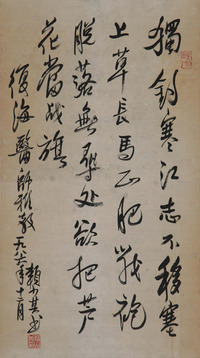 獨釣寒江志不移寒
上草長馬正肥戰袍
脫落無尋处欲把芦
花當战旗
復海醫師雅教
一九八六年十二月
賴少其书